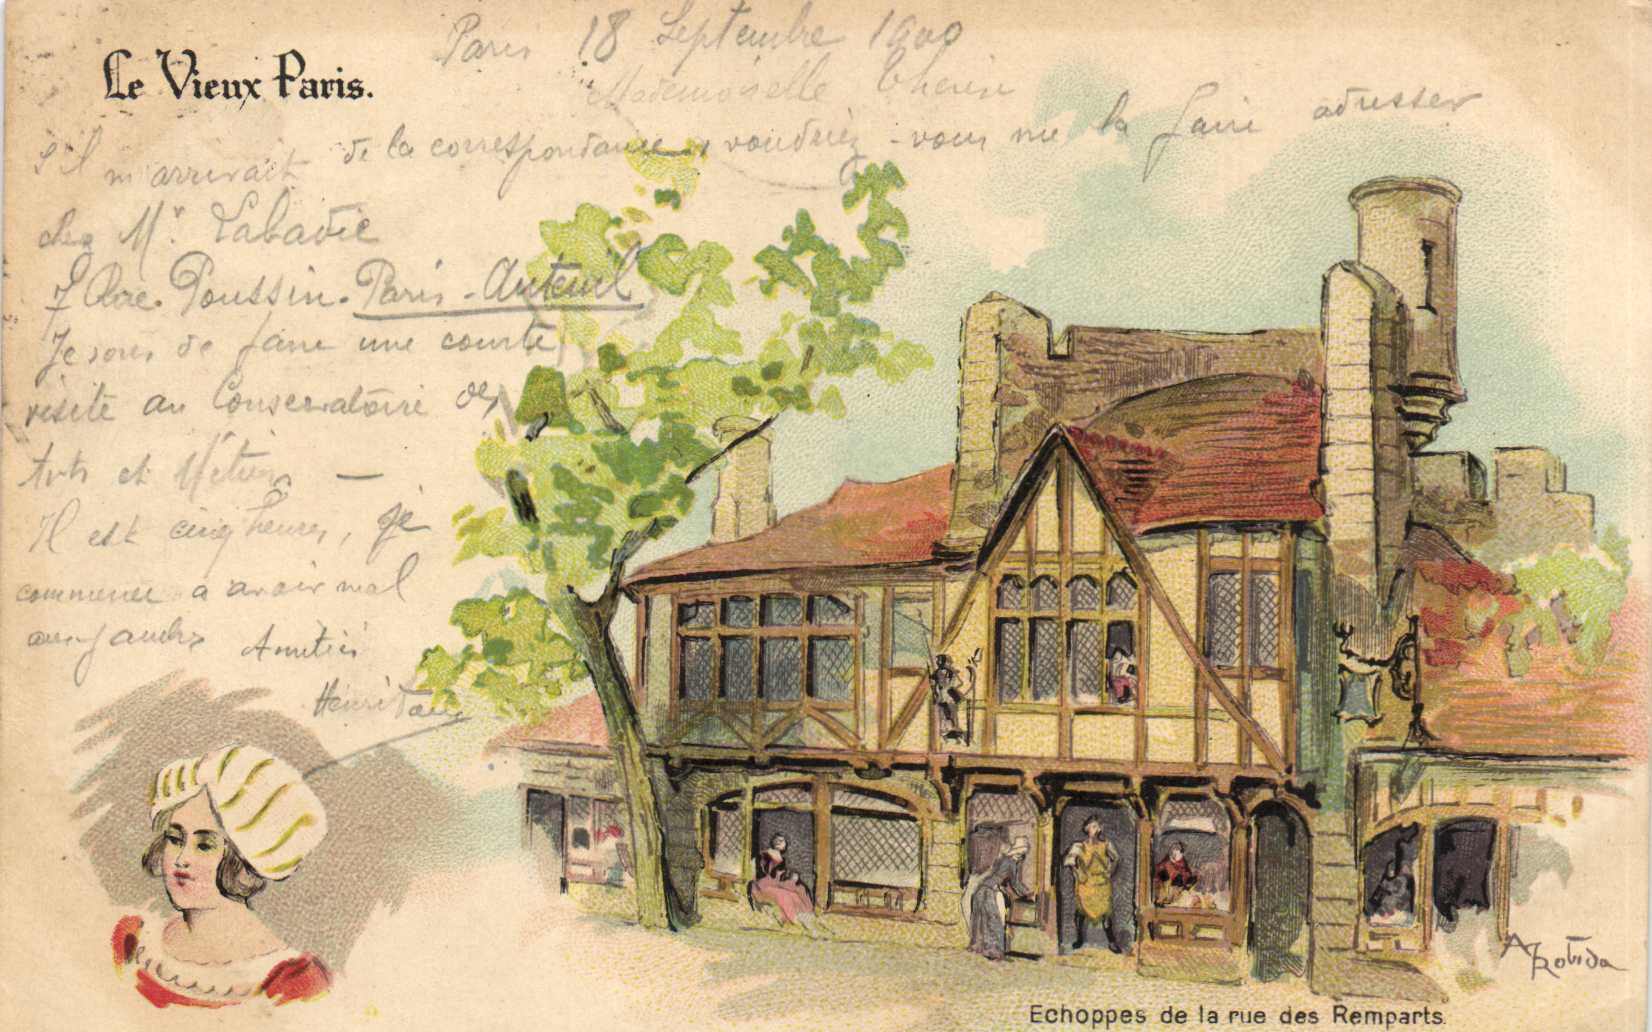 Paris 18 Septembre 1900
Le Vieux Paris.
Mademoiselle
s'il m'arrivait de la correspondance, voudriez-vous me la faire adresser
chez Mr. Labadie
7 Rue Poussin. Paris-Auteuil
Je sors de faire une courte
visite au Conservatoire des
Arts et Métiers —
Il est cinq heures, je
commence a avoir mal
aux jambes Amitiés
Henri
A Robida
Echoppes de la rue des Remparts.